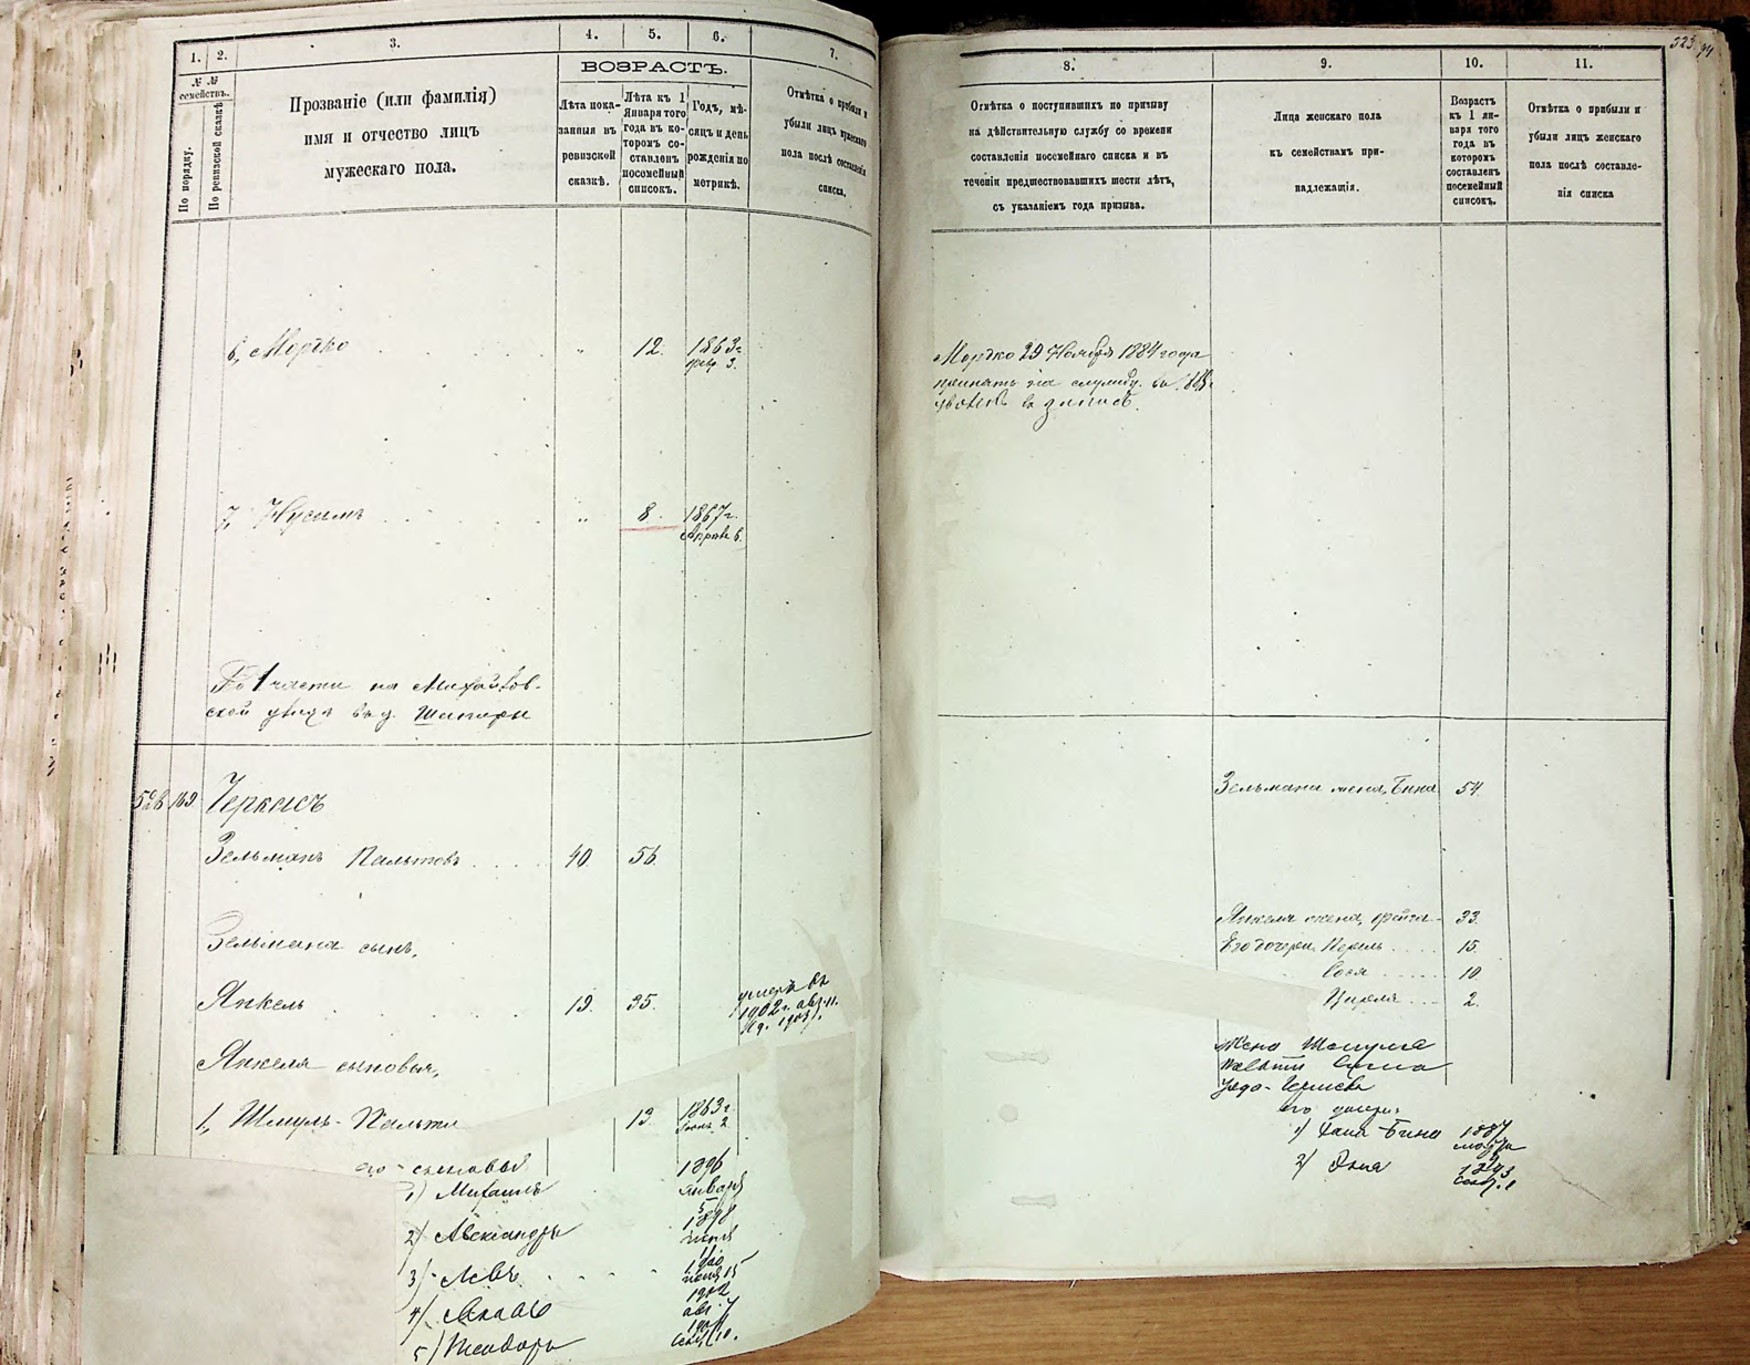 1.
2.
3.
4.
5.
6.
7.
№ №
семействъ.
По порядку.
По ревизской сказкѣ
Прозваніе (или фамилія)
имя и отчество лицъ
мужескаго пола.
ВОЗРАСТЪ.
Лѣта пока-
занныя въ
ревизской
сказкѣ.
Лѣта къ 1
Января того
года въ ко-
торомъ со-
ставленъ
посемейный
списокъ.
Годъ, мѣ-
сяцъ и день
рожденія по
метрикѣ.
Отмѣтка о прибыли и
убыли лицъ мужескаго
пола послѣ составленія
списка.
6, Мордко
12.
1863 г.
февр. 3.
7, Нусимъ
8.
1867 г.
6.
1 части на Михайлов-
ской улицѣ въ д. Шапиры
169
Черкасъ
Зельманъ Пальтовъ
40.
56.
Зельмана сынъ,
Янкель
19.
35.
умеръ въ
1902 г. авг. 11.
Янкеля сыновья,
1, Шмуль-Пальти
13.
1863 г.
2.
его сыновья
1) Михаилъ
1896
января
5
2) Александръ
1898
3) Левъ
15
4)
1902
авг. 7
5) Теодоръ
10.
323
8.
9.
10.
11.
Отмѣтка о поступившихъ по призыву
на дѣйствительную службу со времени
составленія посемейнаго списка и въ
теченіи предшествовавшихъ шести лѣтъ,
съ указаніемъ года призыва.
Лица женскаго пола
къ семействамъ при-
надлежащія.
Возрастъ
къ 1 ян-
варя того
года въ
которомъ
составленъ
посемейный
списокъ.
Отмѣтка о прибыли и
убыли лицъ женскаго
пола послѣ составле-
нія списка
Мордко 29 Ноября 1884 года
принятъ на службу. въ
въ запасъ.
Зельмана жена, Бина
54.
Янкеля жена, Фейга
33.
Его дочери Перель
15.
Сося
10.
Цирля
2.
Жена Шмуля
Пальти
его дочери:
1) Хана-Бина 1887
марта
2) 1893
сент. 1